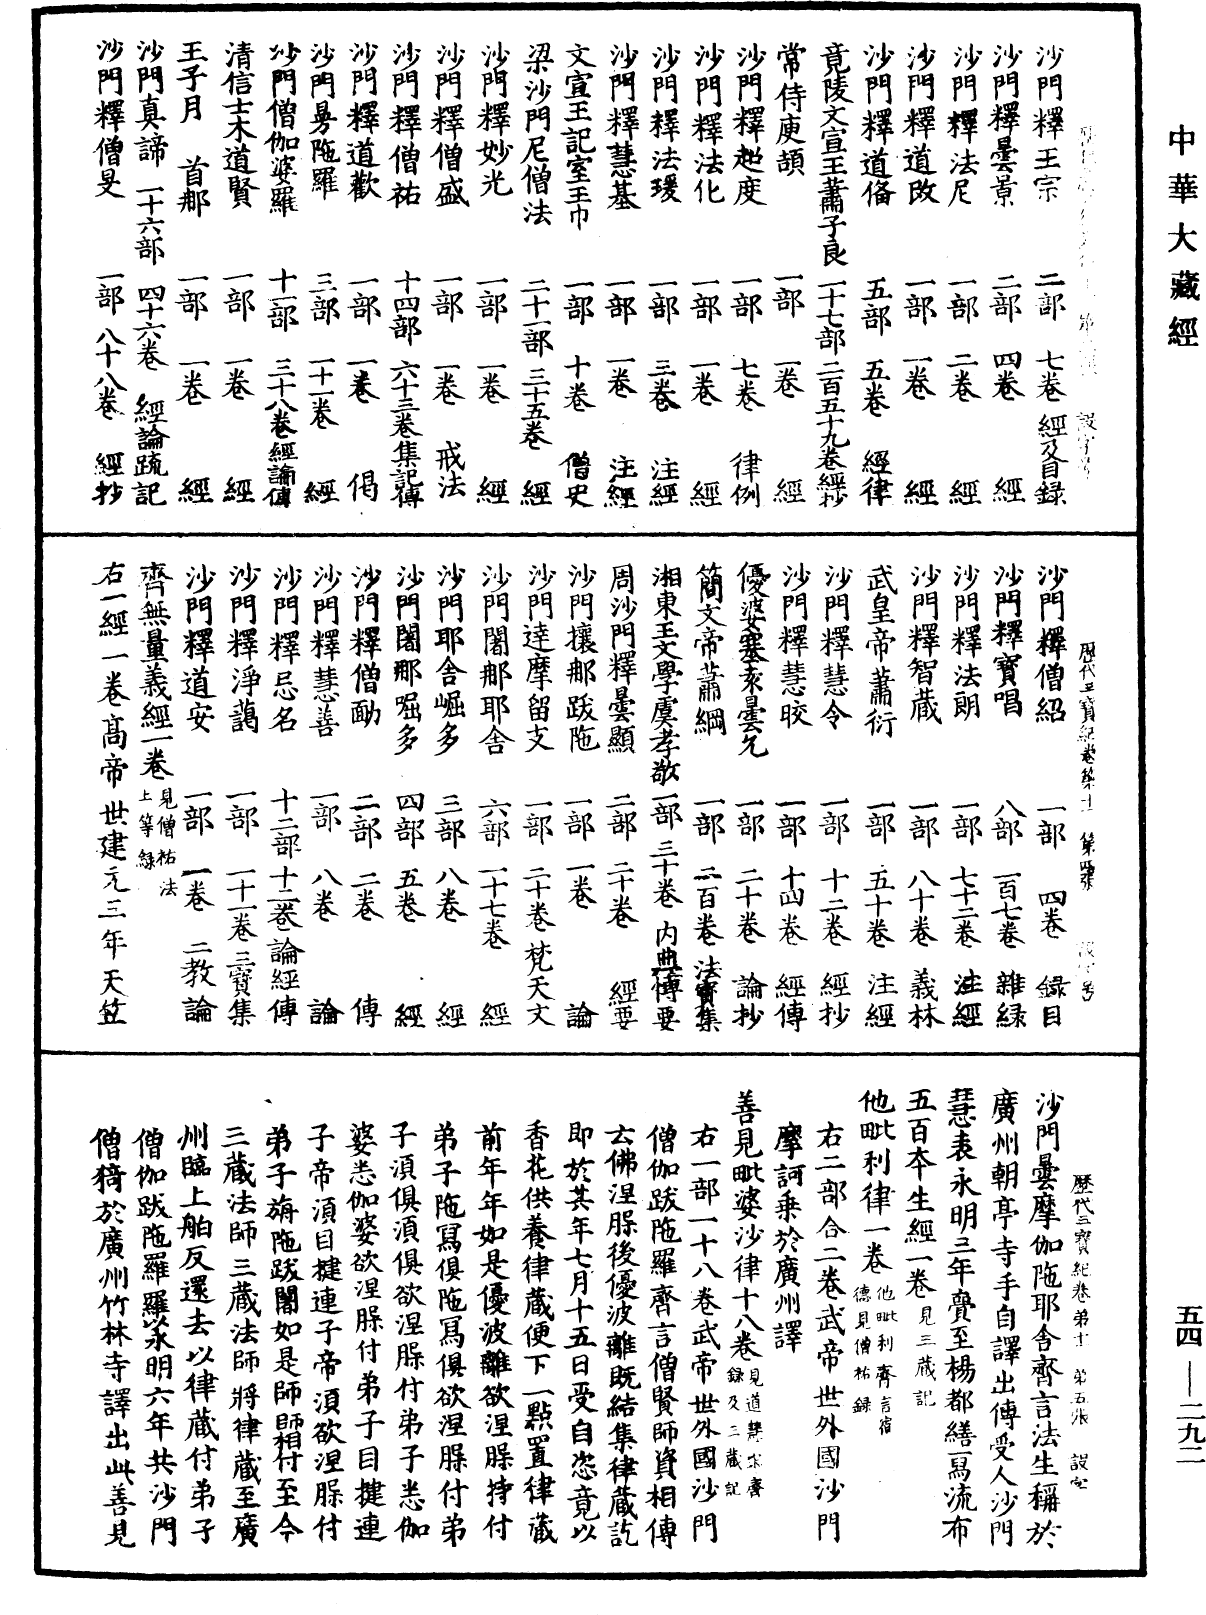 中華大藏經
沙門釋王宗 二部 七卷 經及目録
沙門釋曇景 二部 四卷 經
沙門釋法尼 一部 二卷 經
沙門釋道政 一部 一卷 經
沙門釋道俻 五部 五卷 經律
竟陵文宣王蕭子良 一十七部 二百五十九卷 經抄
常侍庾頡 一部 一卷 經
沙門釋超度 一部 七卷 律例
沙門釋法化 一部 一卷 經
沙門釋法瑗 一部 三卷 注經
沙門釋慧基 一部 一卷 注經
文宣王記室王巾 一部 十卷 僧史
梁沙門尼僧法 二十一部 三十五卷 經
沙門釋妙光 一部 一卷 經
沙門釋僧盛 一部 一卷 戒法
沙門釋僧祐 十四部 六十三卷 集記傳
沙門釋道歡 一部 一卷 偈
沙門曼陁羅 三部 一十一卷 經
沙門僧伽婆羅 十一部 三十八卷 經論傳
清信士木道賢 一部 一卷 經
王子月首那 一部 一卷 經
沙門真諦 一十六部 四十六卷 經論疏記
沙門釋僧旻 一部 八十八卷 經抄
歷代三寶紀卷第十一 第四張
沙門釋僧紹 一部 四卷 録目
沙門釋寶唱 八部 一百七卷 雜録
沙門釋法朗 一部 七十二卷 注經
沙門釋智藏 一部 八十卷 義林
武皇帝蕭衍 一部 五十卷 注經
沙門釋慧令 一部 十二卷 經抄
沙門釋慧皎 一部 十四卷 經傳
優婆塞袁曇允 一部 二十卷 論抄
簡文帝蕭綱 一部 二百卷 法寶集
湘東王文學虞孝敬 一部 三十卷 內典慱要
周沙門釋曇顯 二部 二十卷 經要
沙門攘那跋陁 一部 一卷 論
沙門達摩留支 一部 二十卷 梵天文
沙門闍那耶舍 六部 一十七卷 經
沙門耶舍崛多 三部 八卷 經
沙門闍那崛多 四部 五卷 經
沙門釋僧勔 二部 二卷 傳
沙門釋慧善 一部 八卷 論
沙門釋忌名 十二部 十二卷 論經傳
沙門釋淨藹 一部 一十一卷 三寶集
沙門釋道安 一部 一卷 二教論
齊無量義經一卷 見僧祐法上等録
右一經一卷高帝世建元三年天竺
歷代三寶紀卷第十一 第五張
沙門曇摩伽陁耶舍齊言法生稱於
廣州朝亭寺手自譯出傳受人沙門
慧表永明三年賫至楊都繕寫流布
五百本生經一卷 見三藏記
他毗利律一卷 他毗利齊言宿德見僧祐録
右二部合二卷武帝世外國沙門
摩訶乗於廣州譯
善見毗婆沙律十八卷 見道慧宋齊録及三藏記
右一部一十八卷武帝世外國沙門
僧伽跋陁羅齊言僧賢師資相傳
云佛涅脲後優波離既結集律藏訖
即於其年七月十五日受自恣竟以
香花供養律藏便下一點置律藏
前年年如是優波離欲涅脲持付
弟子陁寫俱陁寫俱欲涅脲付弟
子湏俱湏俱欲涅脲付弟子悉伽
婆悉伽婆欲涅脲付弟子目揵連
子帝湏目揵連子帝湏欲涅脲付
弟子旃陁跋闍如是師師相付至今
三藏法師三藏法師將律藏至廣
州臨上舶反還去以律藏付弟子
僧伽跋陁羅羅以永明六年共沙門
僧猗於廣州竹林寺譯出此善見
五四—二九二